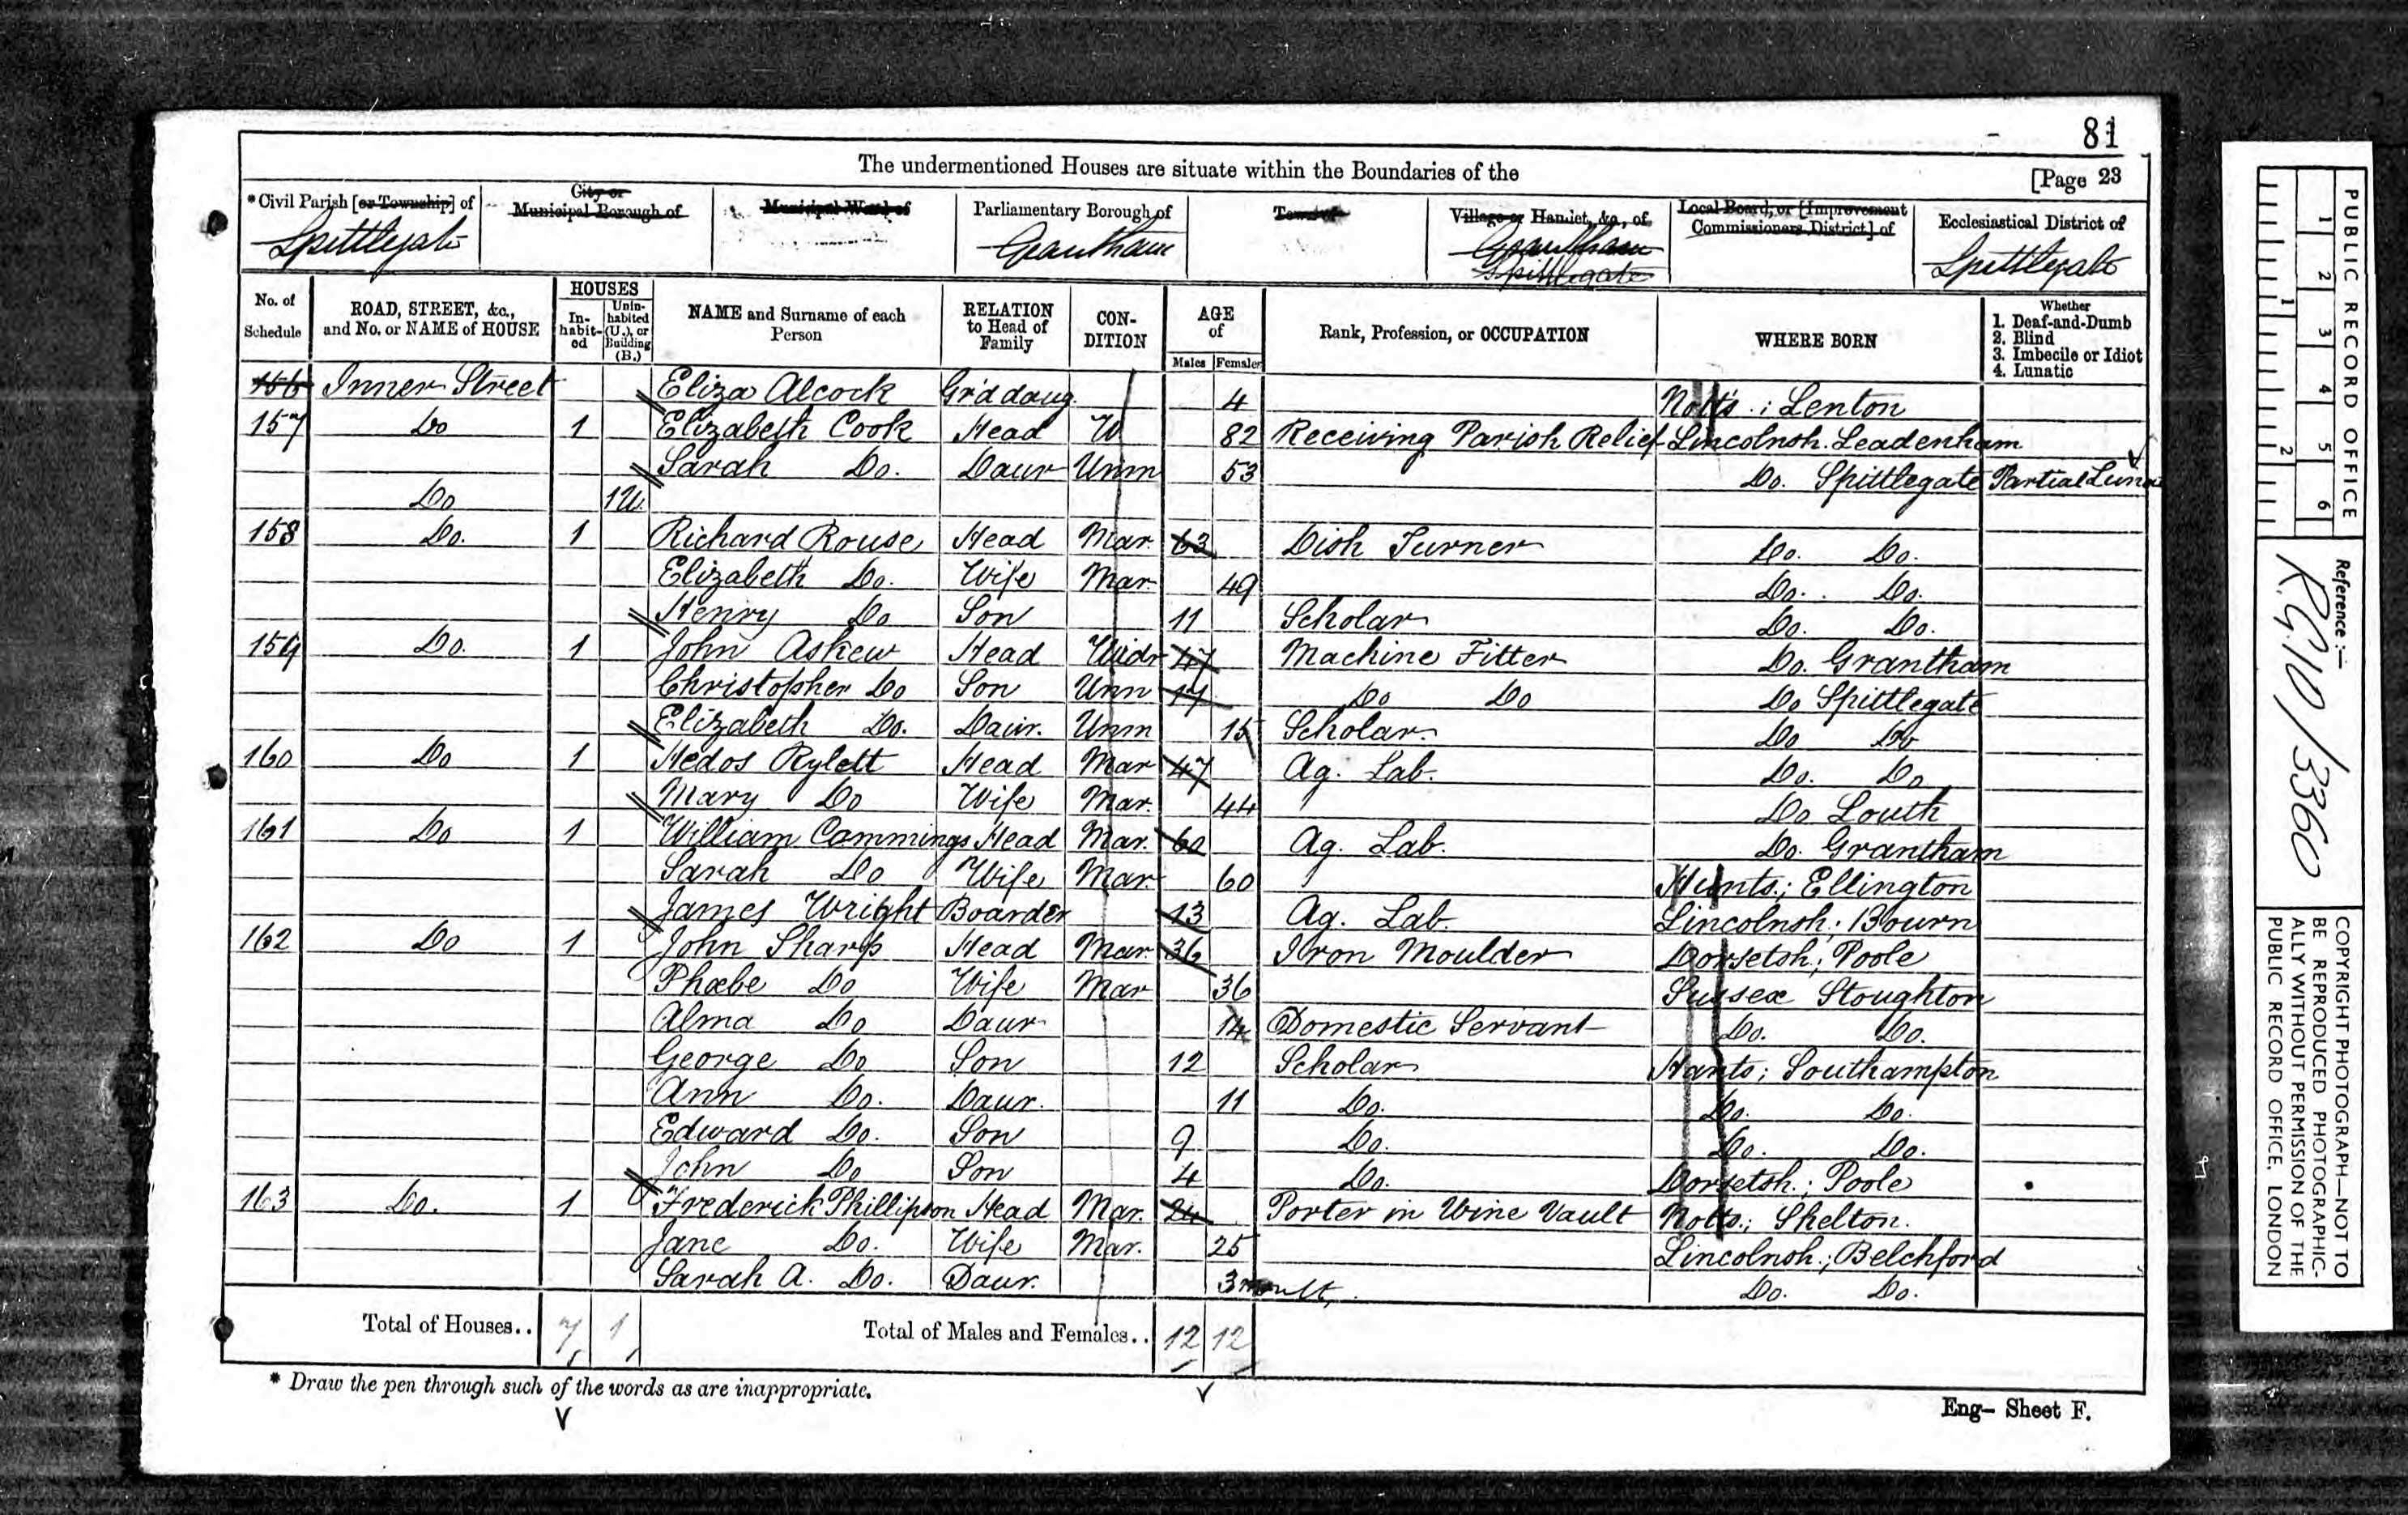 81
The undermentioned Houses are situate within the Boundaries of the
[Page 23
*Civil Parish [or Township] of
City or Municipal Borough of
Municipal Ward of
Parliamentary Borough of
Town of
Village or Hamlet, &c., of
Local Board, or [Improvement Commissioners District] of
Ecclesiastical District of
Spittlegate
Grantham
Grantham
Spittlegate
Spittlegate
No. of Schedule
ROAD, STREET, &c., and No. or NAME of HOUSE
HOUSES
In-habit-ed
Unin-habited (U.), or Building (B.)
NAME and Surname of each Person
RELATION to Head of Family
CON-DITION
AGE of
Males
Females
Rank, Profession, or OCCUPATION
WHERE BORN
Whether
1. Deaf-and-Dumb
2. Blind
3. Imbecile or Idiot
4. Lunatic
156 Inner Street Eliza Alcock Gr'd daug. 4 Notts.; Lenton
157 Do 1 Elizabeth Cook Head W 82 Receiving Parish Relief Lincolnsh. Leadenham
Sarah Do. Daur Unm 53 Do. Spittlegate Partial Lunatic
Do 1U
158 Do. 1 Richard Rouse Head Mar. 63 Dish Turner Do. Do.
Elizabeth Do. Wife Mar. 49 Do. Do.
Henry Do Son 11 Scholar Do. Do.
159 Do. 1 John Askew Head Widr 47 Machine Fitter Do. Grantham
Christopher Do Son Unn 17 Do Do Do Spittlegate
Elizabeth Do. Daur. Unm 15 Scholar Do Do
160 Do 1 Hedos Rylett Head Mar 47 Ag. Lab. Do. Do
Mary Do Wife Mar. 44 Do Louth
161 Do 1 William Cammings Head Mar. 60 Ag. Lab. Do. Grantham
Sarah Do Wife Mar. 60 Hunts.; Ellington
James Wright Boarder 13 Ag. Lab. Lincolnsh.; Bourn
162 Do 1 John Sharp Head Mar. 36 Iron Moulder Dorsetsh.; Poole
Phœbe Do Wife Mar 36 Sussex Stoughton
Alma Do Daur 14 Domestic Servant Do. Do.
George Do Son 12 Scholar Hants; Southampton
Ann Do. Daur. 11 Do. Do. Do.
Edward Do. Son 9 Do. Do. Do.
John Do Son 4 Do. Dorsetsh.; Poole
163 Do. 1 Frederick Phillipson Head Mar. 24 Porter in Wine Vault Notts.; Shelton.
Jane Do. Wife Mar. 25 Lincolnsh.; Belchford
Sarah A. Do. Daur. 3 Do. Do.
Total of Houses.. 7 1 Total of Males and Females.. 12 12
* Draw the pen through such of the words as are inappropriate.
Eng- Sheet F.
PUBLIC RECORD OFFICE
1 2 3 4 5 6
1 2
Reference:-
R.G.10/3360
COPYRIGHT PHOTOGRAPH—NOT TO
BE REPRODUCED PHOTOGRAPHIC-
ALLY WITHOUT PERMISSION OF THE
PUBLIC RECORD OFFICE, LONDON